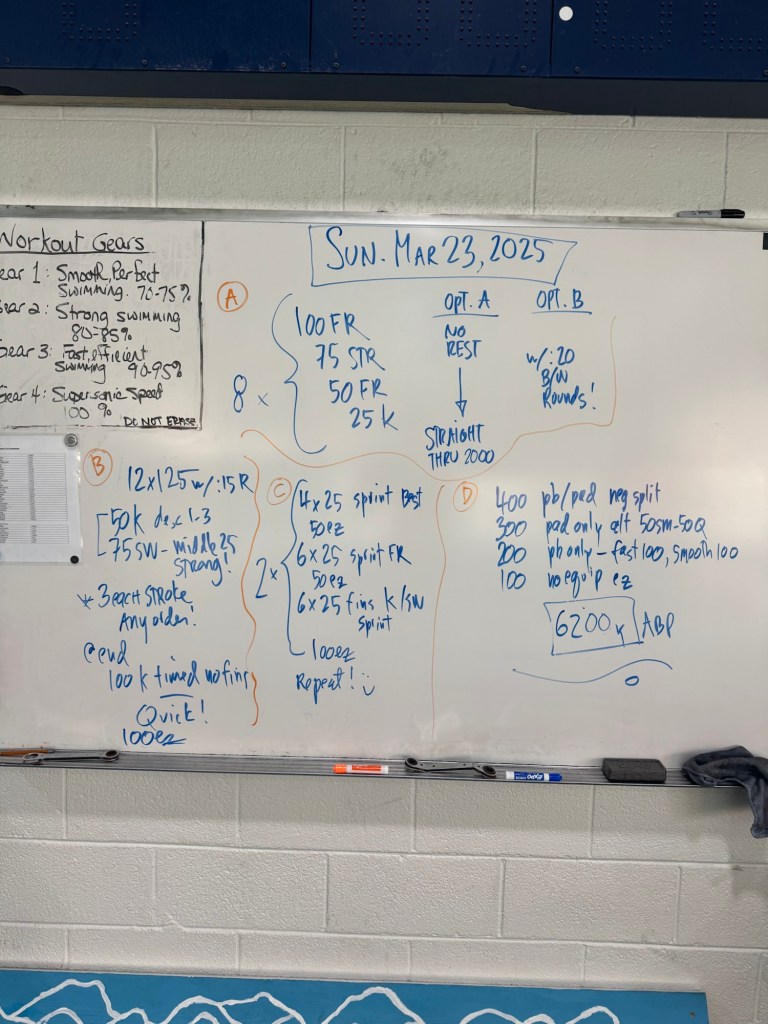 Workout Gears
ear 1: Smooth, Perfect
SWIMMING. 70-75%
ear 2: Strong SWIMMING
80-85%
Gear 3: Fast, efficient
Swimming 90-95%
Gear 4: Supersonic Speed
100 %
DO NOT ERASE
SUN. MAR 23, 2025
A
8 x
100 FR
75 STR
50 FR
25 K
OPT. A
NO
REST
STRAIGHT
THRU 2000
OPT. B
w/ :20
B/W
Rounds!
B
12x125 w/ :15 R
50 k desc 1-3
75 SW - middle 25
strong!
* 3 each STROKE
Any order!
@ end
100 k timed no fins
Quick!
100 ez
C
2 x
4 x 25 sprint Best
50 ez
6 x 25 sprint FR
50 ez
6 x 25 fins K/SW
sprint
100 ez
Repeat!
D
400 pb/pad neg split
300 pad only alt 50sm-50Q
200 pb only - fast 100, smooth 100
100 no equip ez
6200 ABP
EXPO